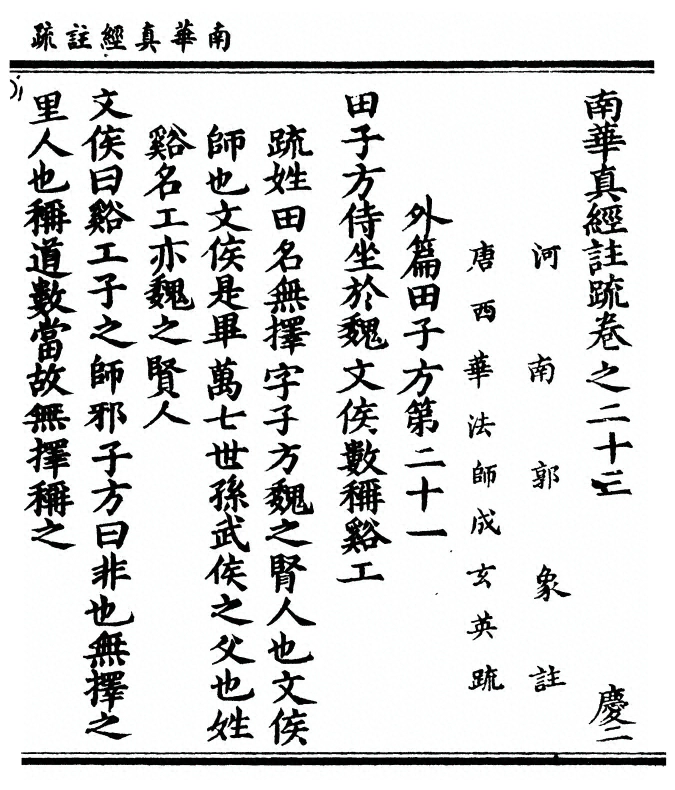 南華真經註疏
南華真經註疏卷之二十三 慶二
河南郭象註
唐西華法師成玄英疏
外篇田子方第二十一
田子方侍坐於魏文侯數稱谿工
疏姓田名無擇字子方魏之賢人也文侯
師也文侯是畢萬七世孫武侯之父也姓
谿名工亦魏之賢人
文侯曰谿工子之師邪子方曰非也無擇之
里人也稱道數當故無擇稱之